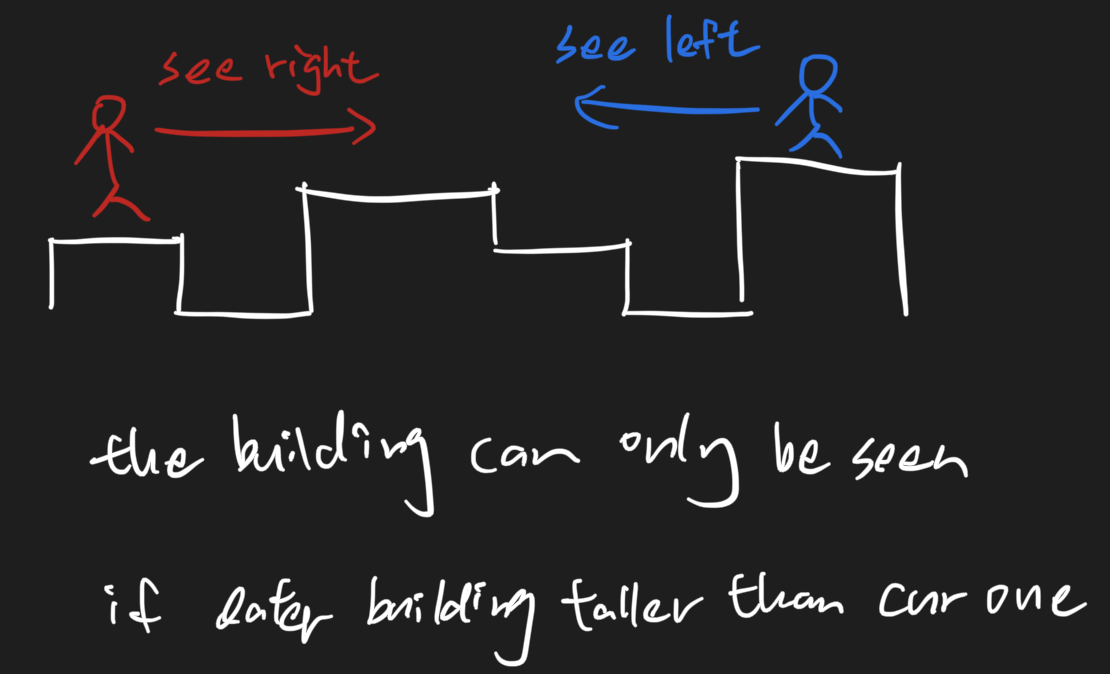 see right
see left
the building can only be seen
if later building taller than cur one